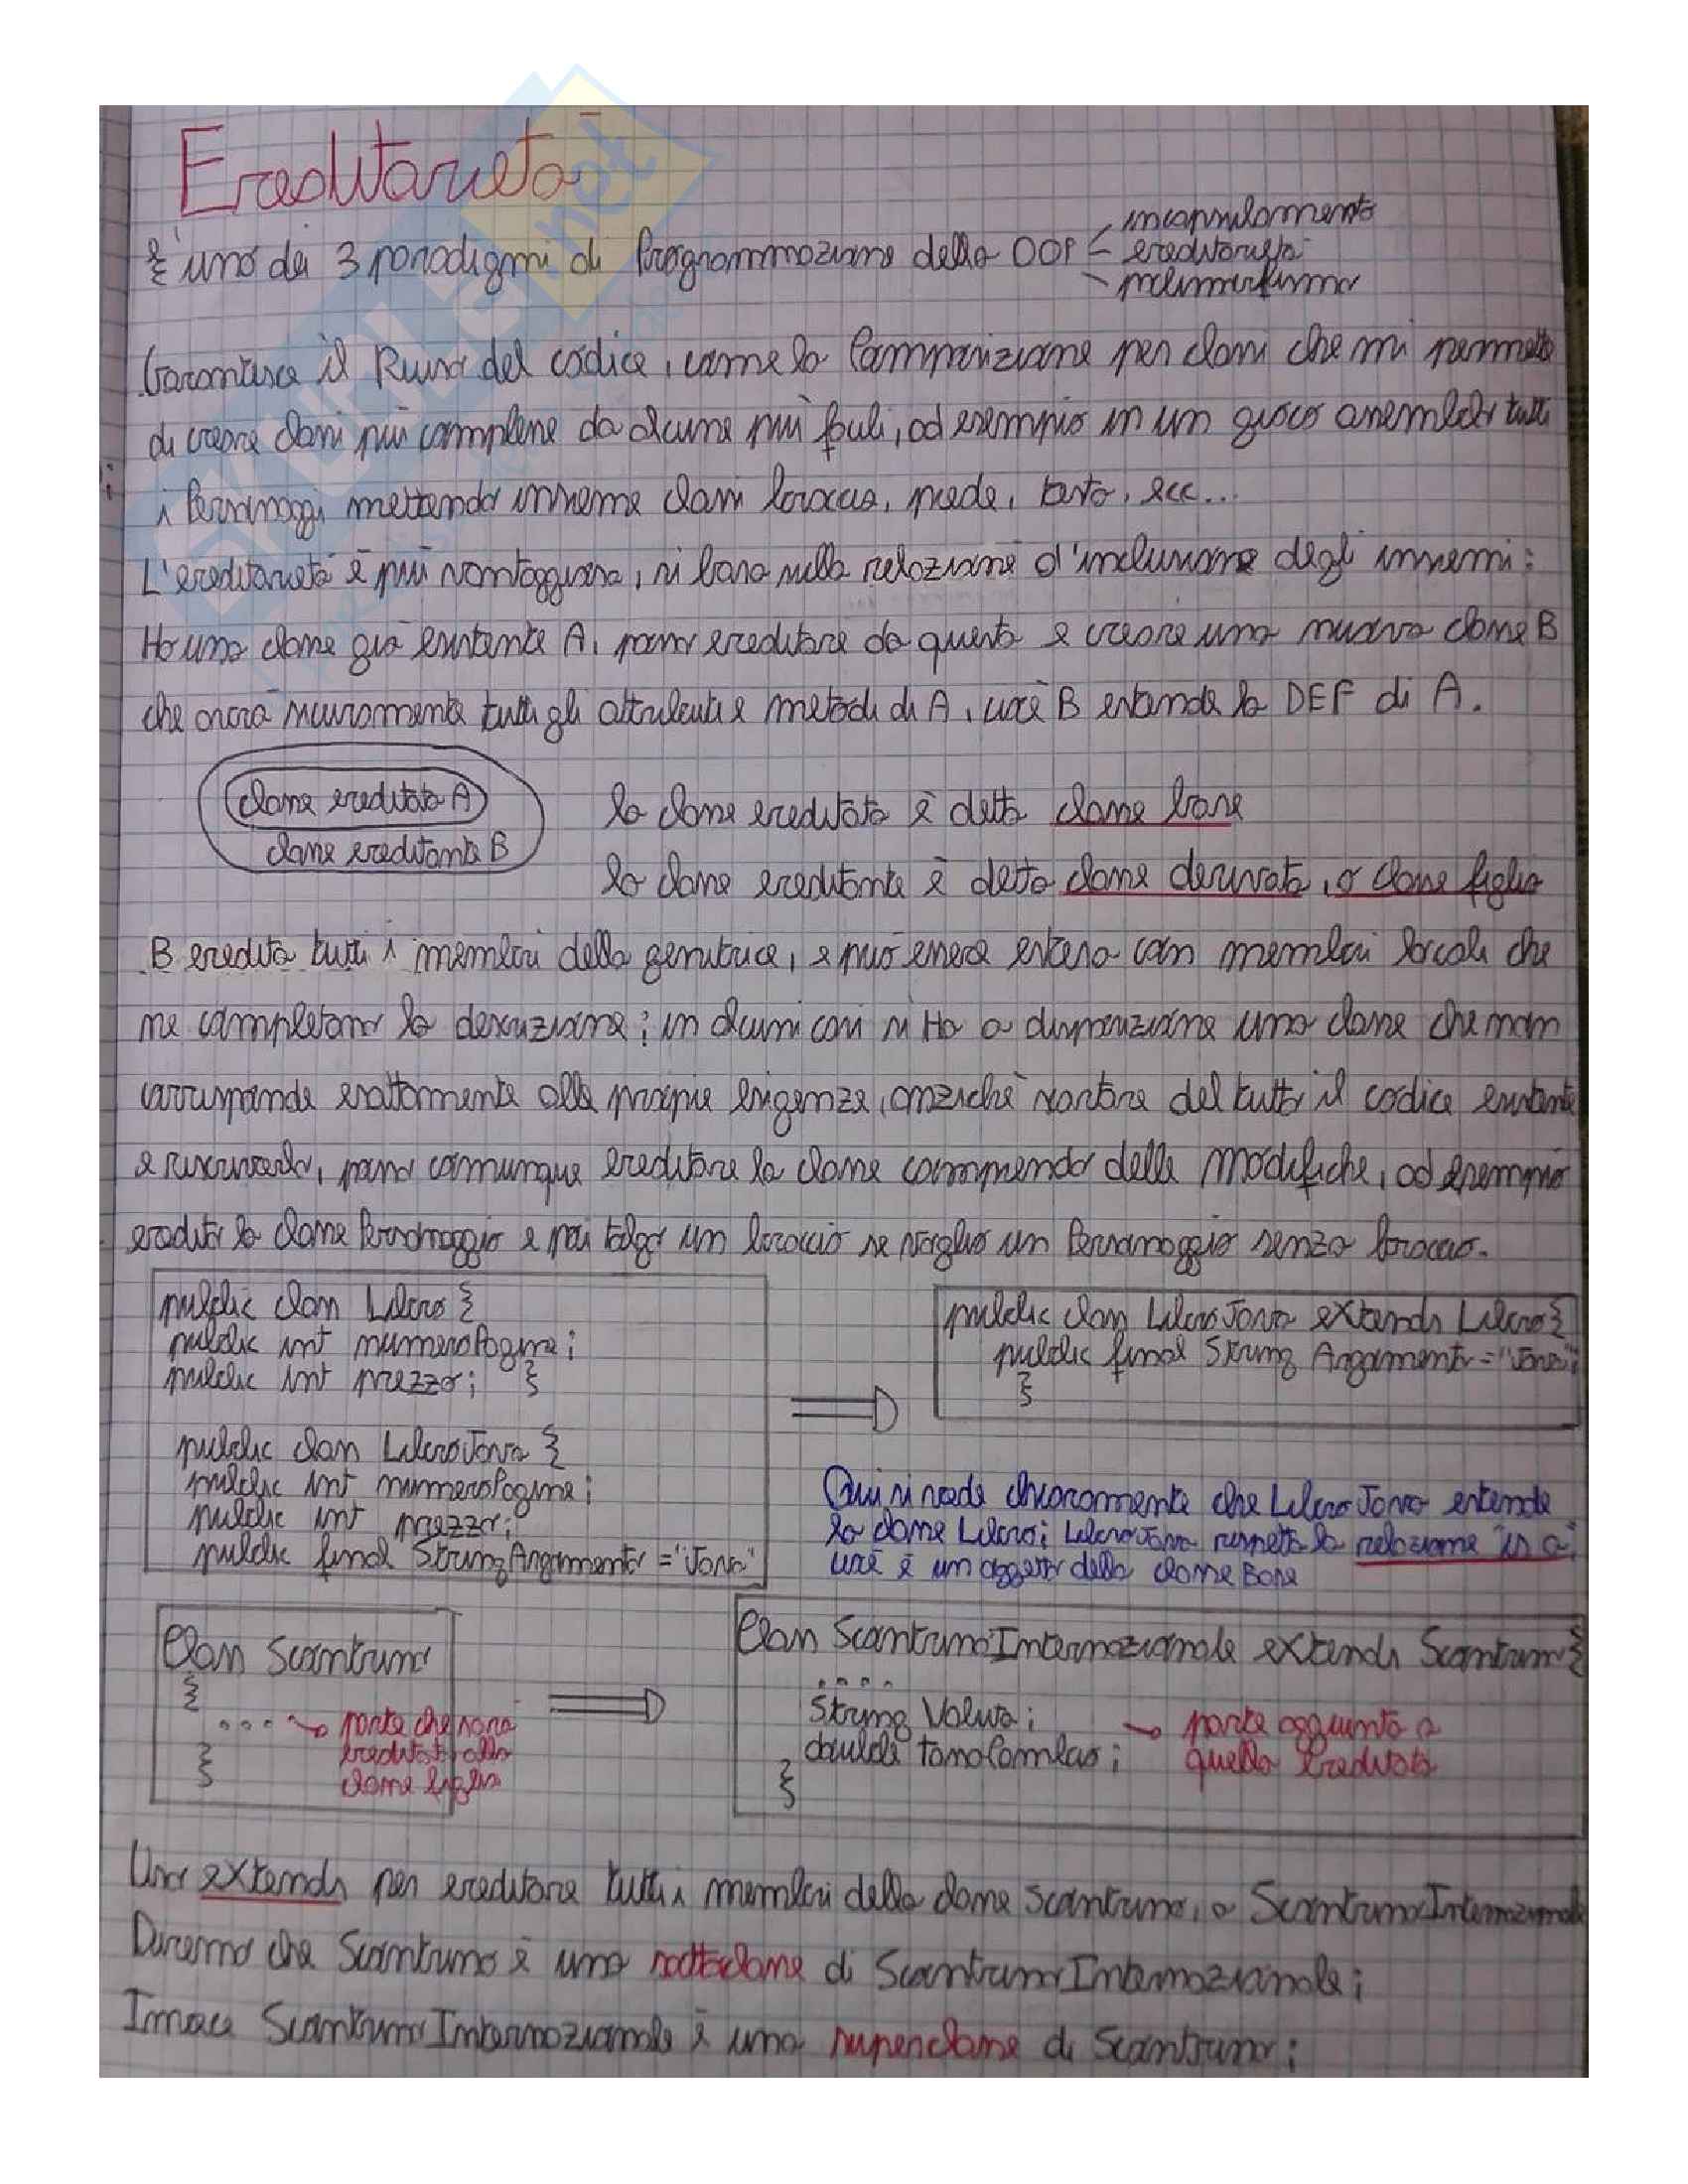 Ereditarietà
È uno dei 3 paradigmi di Programmazione della OOP
incapsulamento
ereditarietà
polimorfismo
Garantisce il Riuso del codice, come la Composizione per classi che mi permette
di creare classi più complesse da alcune più facili, ad esempio in un gioco assemblo tutti
i Personaggi mettendo insieme classi braccio, piede, testa, ecc...
L'ereditarietà è più vantaggiosa, si basa sulla relazione d'inclusione degli insiemi:
Ho una classe già esistente A, posso ereditare da questa e creare una nuova classe B
che avrà sicuramente tutti gli attributi e metodi di A, cioè B estende la DEF di A.
classe ereditata A
classe ereditante B
la classe ereditata è detta classe base
la classe ereditante è detta classe derivata, o classe figlia
B eredita tutti i membri della genitrice, e può essere estesa con membri locali che
ne completano la descrizione; in alcuni casi si Ha a disposizione una classe che non
corrisponde esattamente alle proprie esigenze, anziché scartare del tutto il codice esistente
e riscriverlo, posso comunque ereditare la classe compiendo delle modifiche, ad esempio
eredito la classe Personaggio e poi tolgo un braccio se voglio un Personaggio senza braccio.
public class Libro {
public int numeroPagine;
public int prezzo; }
public class LibroJava {
public int numeroPagine;
public int prezzo;
public final String Argomento = "Java"
public class LibroJava extends Libro {
public final String Argomento = "Java";
}
Qui si vede chiaramente che LibroJava estende
la classe Libro; LibroJava rispetta la relazione is a;
cioè è un oggetto della classe Base
Class Scontrino
{
.... parte che sarà
ereditata alla
classe figlia
}
Class ScontrinoInternazionale extends Scontrino {
....
String Valuta;
double tassoCambio;
}
parte aggiunta a
quella Ereditata
Uso extends per ereditare tutti i membri della classe Scontrino, a ScontrinoInternazionale
Diremo che Scontrino è una sottoclasse di ScontrinoInternazionale;
Invece ScontrinoInternazionale è una superclasse di Scontrino;
SKUOLA.net